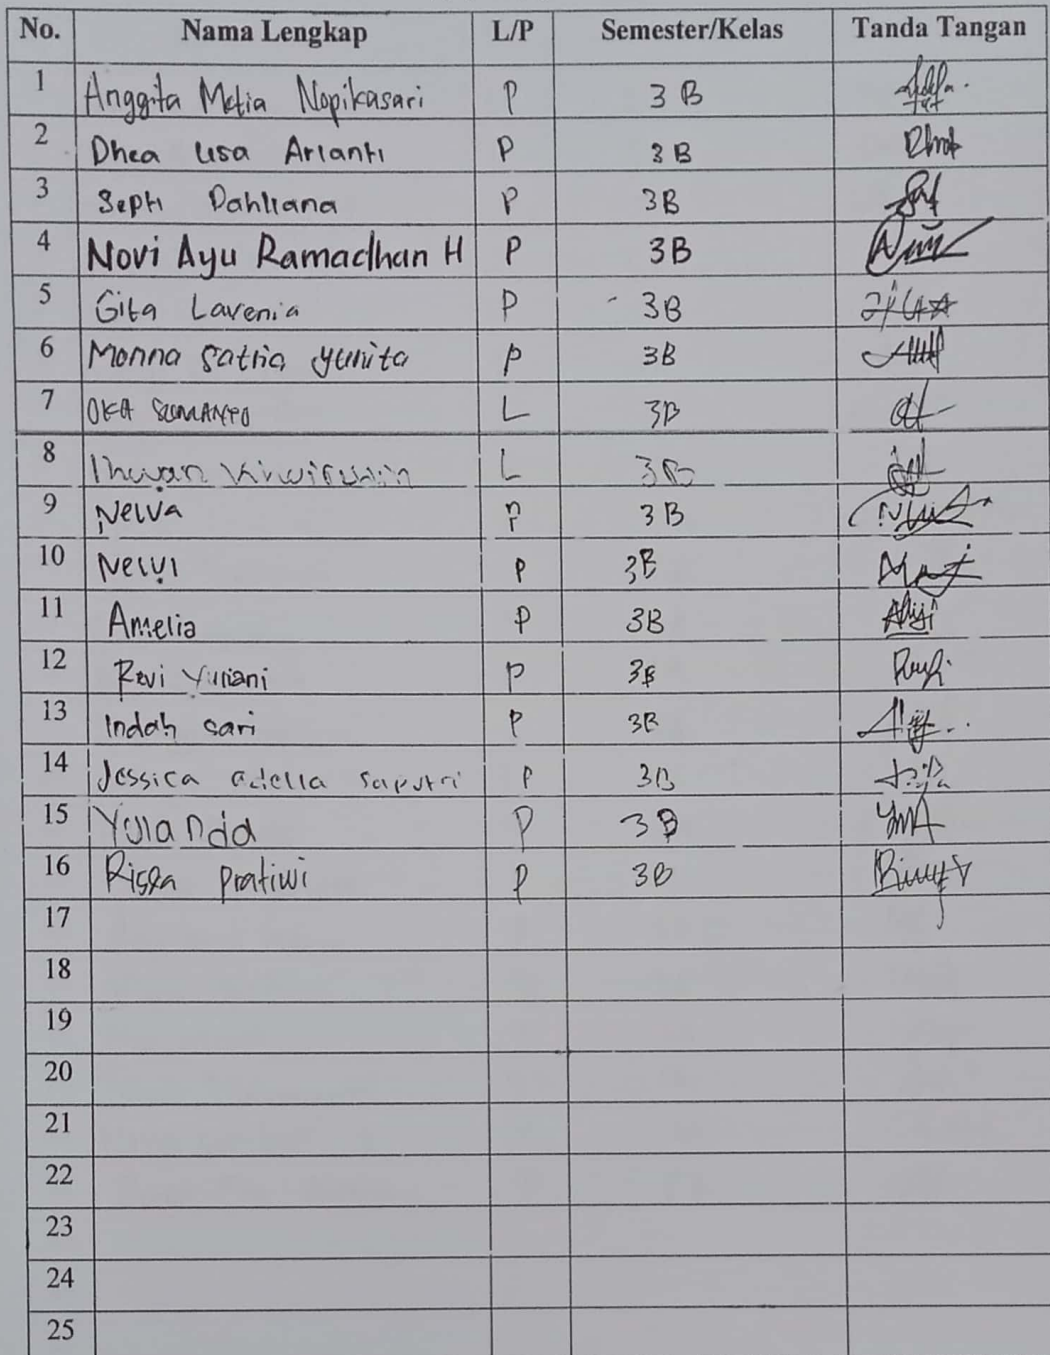 No. Nama Lengkap L/P Semester/Kelas Tanda Tangan
1 Anggita Metia Nopikasari P 3 B
2 Dhea Lisa Arianti P 3 B
3 Septi Dahliana P 3B
4 Novi Ayu Ramadhan H P 3B
5 Gita Lavenia P 3B
6 Monna Satria Yunita P 3B
7 OKA SUMANTO L 3B
8 Ihwan L 3B
9 Nelva P 3B
10 Nelvi P 3B
11 Amelia P 3B
12 Revi Yuliani P 3B
13 Indah sari P 3B
14 Jessica adella saputri P 3B
15 Yolanda P 3B
16 Riska pratiwi P 3B
17
18
19
20
21
22
23
24
25